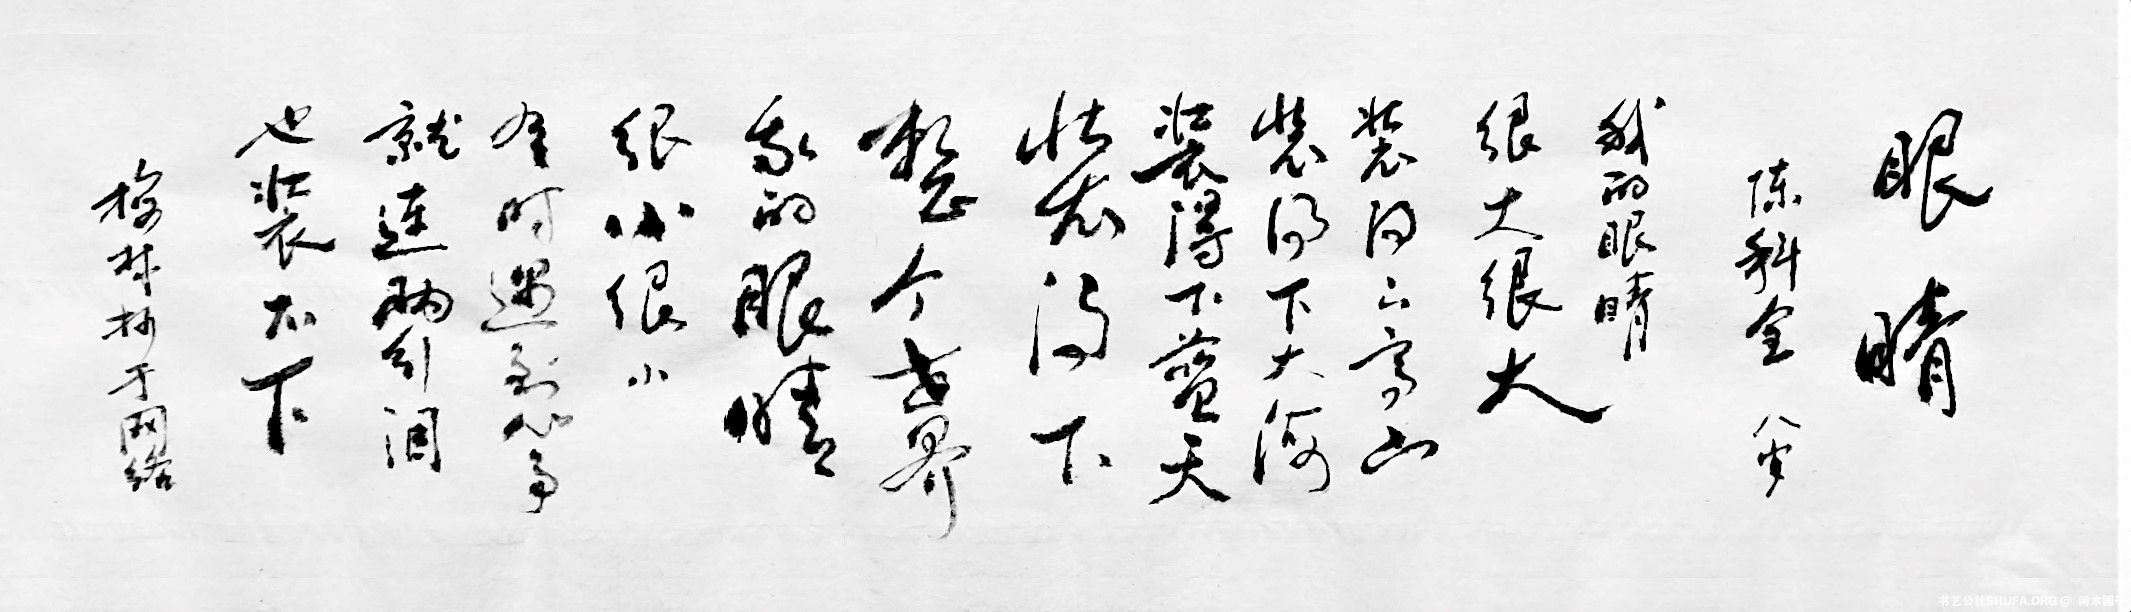 眼睛
陈科全 八岁
我的眼睛
很大很大
装得下高山
装得下大海
装得下蓝天
装得下
整个世界
我的眼睛
很小很小
有时遇到心事
就连两行泪
也装不下
于网络
书艺公社SHUFA.ORG @